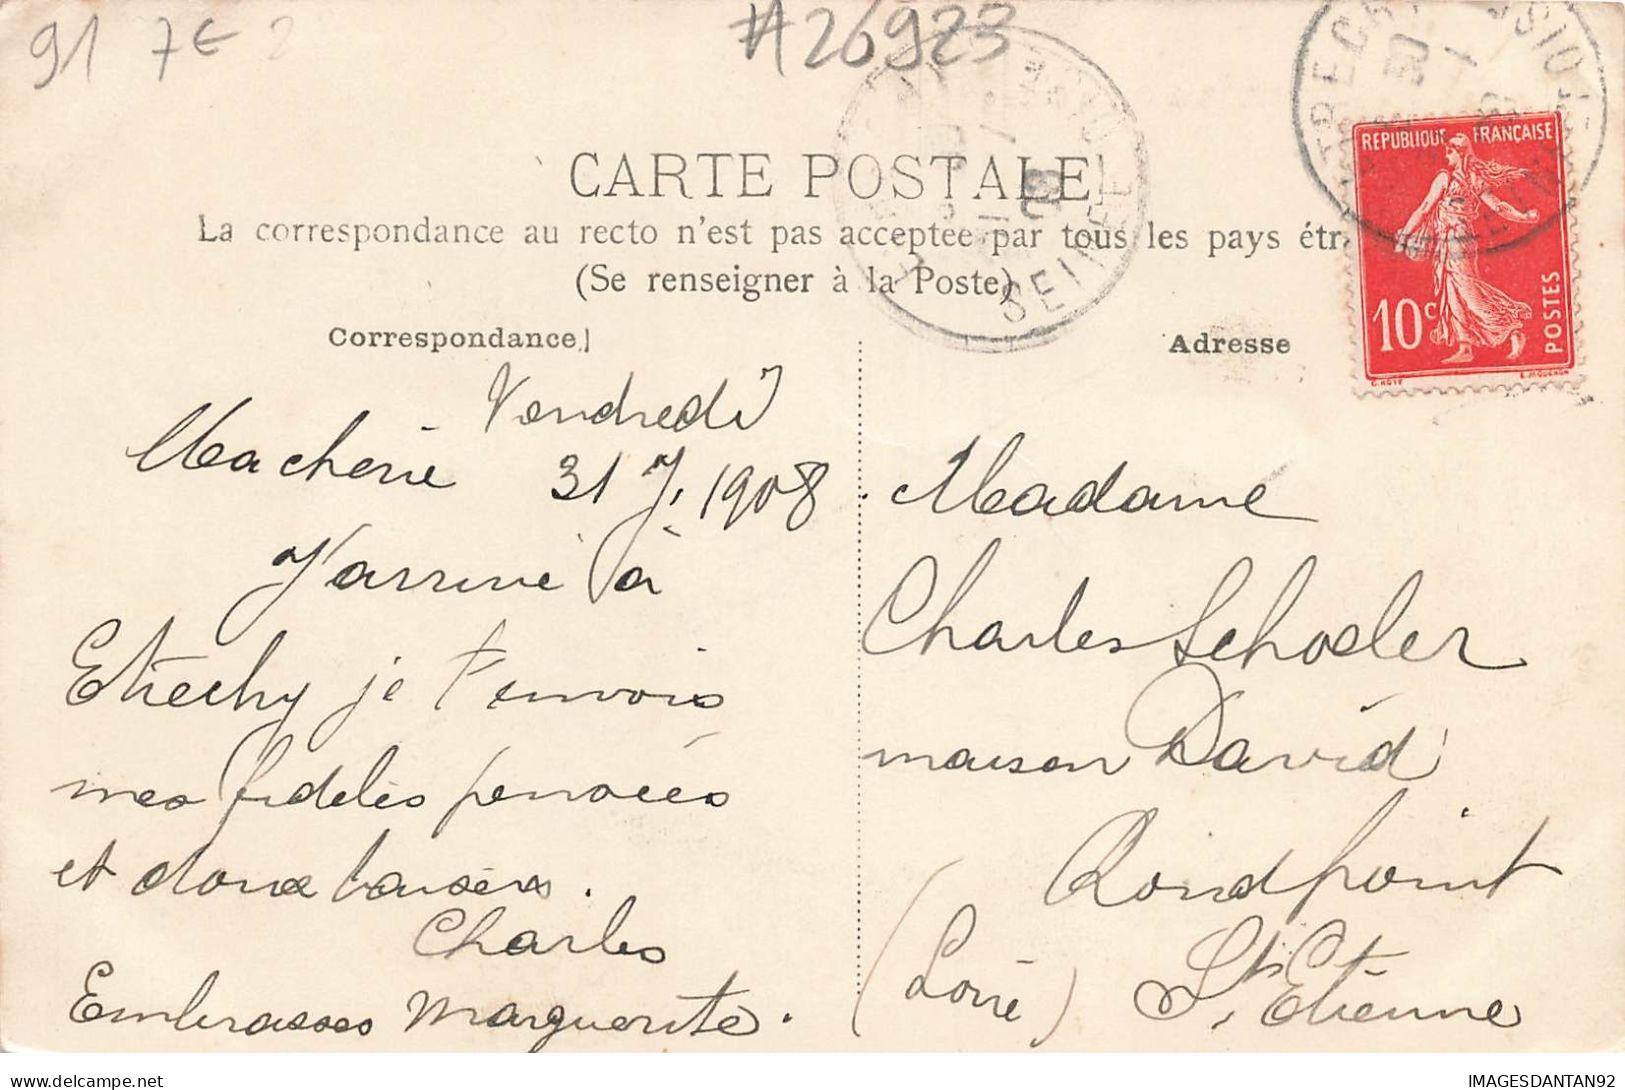 91 7€ 2
#26923
CARTE POSTALE
La correspondance au recto n'est pas acceptée par tous les pays étr
(Se renseigner à la Poste)
Correspondance
Adresse
REPUBLIQUE FRANÇAISE
10c
POSTES
SEINE
Vendredi
Ma cherie 31 J. 1908
J'arrive à
Etrechy je t'envois
mes fidèles pensées
et doux baisers.
Charles
Embrasses Marguerite.
Madame
Charles Schoeler
maison David
Rondpoint
St. Etienne
(Loire)
IMAGESDANTAN92